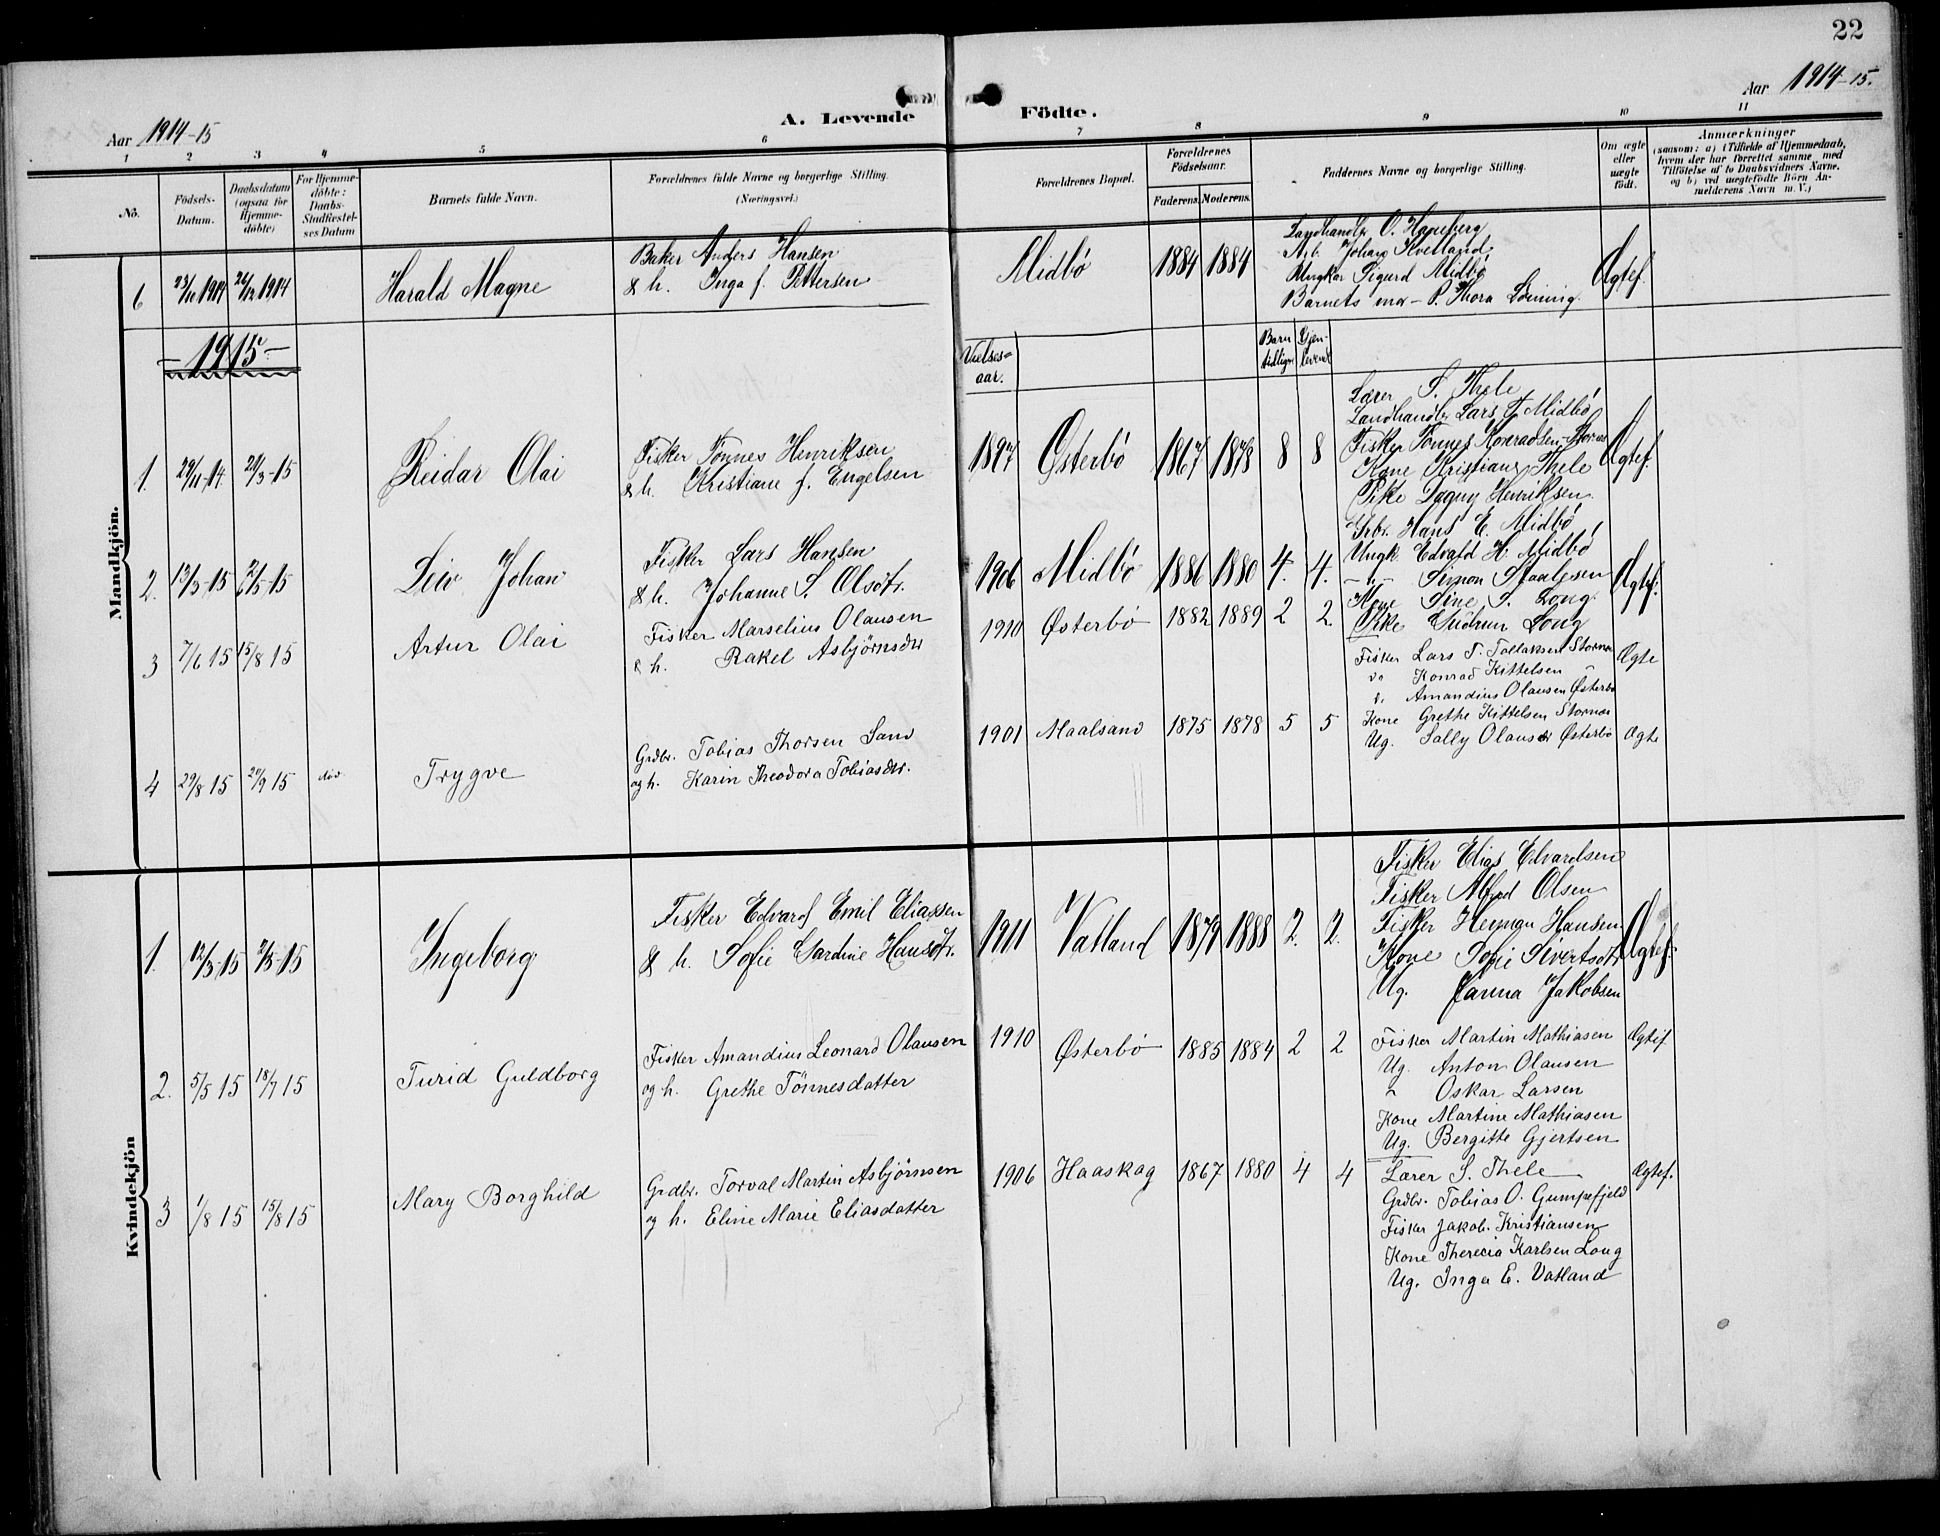 22
Aar 1914-15
A. Levende Födte.
Aar 1914-15.
1 2 3 4 5 6 7 8 9 10 11
No.
Födsels-
Datum.
Daabsdatum
(ogsaa for
Hjemme-
döbte)
For Hjemme-
döbte:
Daabs-
Stadfestel-
ses Datum
Barnets fulde Navn.
Forældrenes fulde Navne og borgerlige Stilling.
(Næringsvei.)
Forældrenes Bopæl.
Forældrenes
Födselsaar.
Faderens. Moderens.
Faddernes Navne og borgerlige Stilling.
Om ægte
eller
uægte
födt.
Anmærkninger
(saasom: a) i Tilfælde af Hjemmedaab,
hvem der har forrettet samme, med
Tilföielse af to Daabsvidners Navne.
og b) ved uægtefödte Börn An-
melderens Navn m. V.)
Mandkjön.
6 26/12 1914 Harald Magne
Baker Anders Hansen
& h. Inga f. Pettersen
Midbö 1884 1884
Landhandlr O.
Arb. Johan Kvelland
Ungkar Sigurd Midbö
Barnets mor - P. Thora
Ægtef.
- 1915 -
Vielses-
aar.
Barn
tidliger
Gjen-
levend
1. 29/11 14. 21/3-15 Reidar Olai
Fisker Tönnes Henriksen
& h. Kristiane f. Engelsen
1897 Østerbö 1867 1878 8 8
Lærer S. Thele
Landhandlr Lars T. Midbö
Fisker Tönnes Konradsen Stornes
Kone Kristiane Thele
Pike Dagny Henriksen
Ægtef.
2. 13/3-15 2/5-15 Leiv Johan
Fisker Lars Hansen
& h. Johanne S. Olsdtr.
1906 Midbö 1886 1880 4. 4.
Grbr. Hans E. Midbö
Ungk Edvald H. Midbö
-"- Simon Staalesen
Kone Sine S. Long.
Pike Gudrun Long
Ægtef.
3 7/6 15 15/8 15 Artur Olai
Fisker Marselius Olausen
& h. Rakel Asbjörnsdtr
1910 Østerbö 1882 1889 2 2
Fisker Lars T. Tollaksen Stornes
do Konrad Kittelsen
Amandius Olausen Østerbö
Kone Grethe Kittelsen Stornes
Ug. Sally Olausdr Østerbö
Ægte
4 29/8 15 27/9 15 Trygve
Grdbr. Tobias Thorsen Sand
og h. Karin Theodora Tobiasdtr.
1901 Maalsand 1875 1878 5 5 Ægte
Kvindekjön
1. 12/3 15 2/5-15 Ingeborg
Fisker Edvard Emil Eliassen
& h. Sofie Sardine Hansdtr.
1911 Vatland 1879 1888 2. 2.
Fisker Elias Edvardsen
Fisker Alfred Olsen
Fisker Herman Hansen
Kone Sofie Sivertsdtr
Ug. Janna Jakobsen
Ægtef.
2. 5/5 15 18/7 15 Turid Guldborg
Fisker Amandius Leonard Olausen
og h. Grethe Tönnesdatter
1910 Østerbö 1885 1884 2 2
Fisker Martin Mathiasen
Ug. Anton Olausen
" Oskar Larsen
Kone Martine Mathiasen
Ug. Bergitte Gjertsen
Ægtef
3 1/8 15 15/8 15 Mary Borghild
Grdbr. Torval Martin Asbjörnsen
og h. Eline Marie Eliasdatter
1906 Haaskag 1867 1880 4 4
Lærer S. Thele
Grdbr. Tobias O. Gumpefjeld
Fisker Jakob. Kristiansen
Kone Therecia Karlsen Long
Ug. Inga E. Vatland
Ægtef.